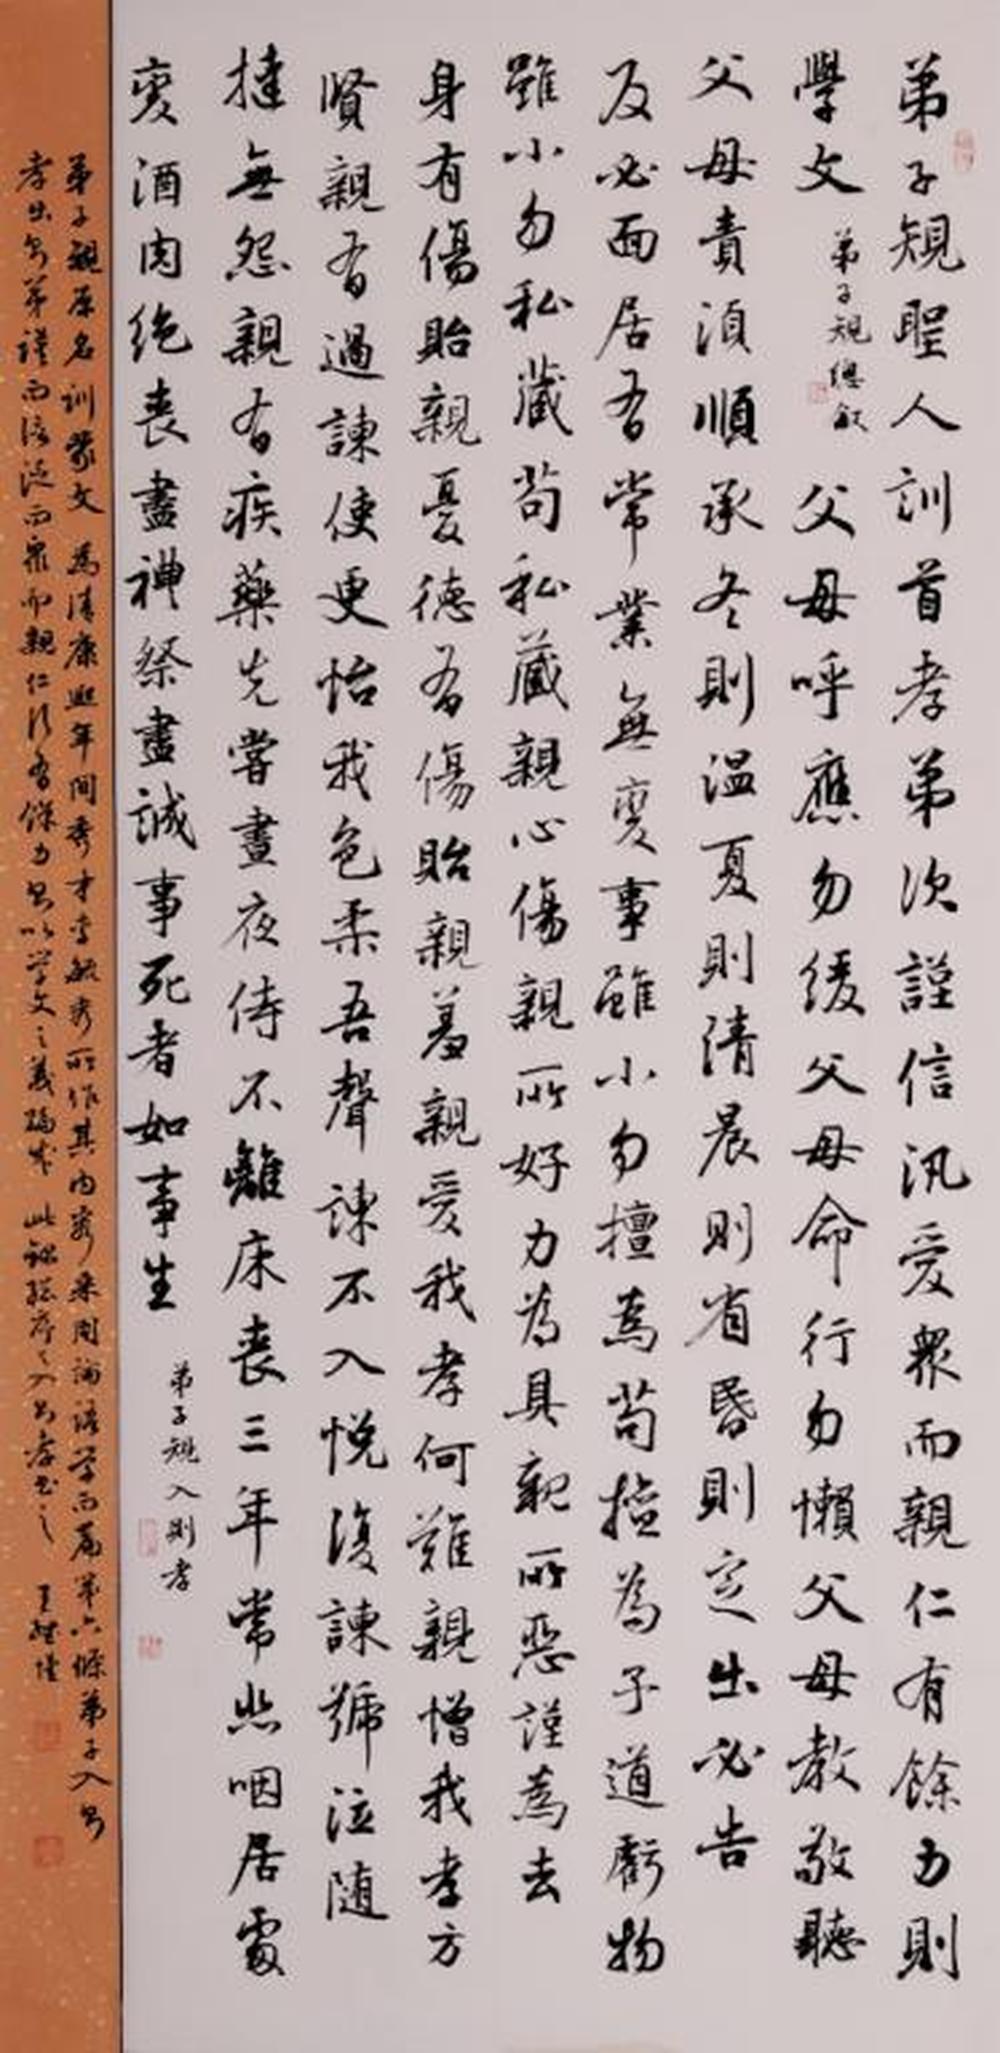 弟子規聖人訓首孝弟次謹信汎愛衆而親仁有餘力則
學文 弟子規總敘 父母呼應勿緩父母命行勿懶父母教敬聽
父母責須順承冬則温夏則清晨則省昏則定出必告
反必面居有常業無變事雖小勿擅為苟擅為子道虧物
雖小勿私藏苟私藏親心傷親所好力為具親所惡謹為去
身有傷貽親憂德有傷貽親羞親愛我孝何難親憎我孝方
賢親有過諫使更怡我色柔吾聲諫不入悅復諫號泣随
撻無怨親有疾藥先嘗晝夜侍不離床喪三年常悲咽居處
變酒肉絕喪盡禮祭盡誠事死者如事生 弟子規入則孝
弟子規原名訓蒙文 為清康熙年间秀才李毓秀所作其内容采用論語学而篇第六條弟子入則
孝出則弟謹而信泛而衆而親仁行有餘力則以学文之義編成 此録総序之入則孝書之 王